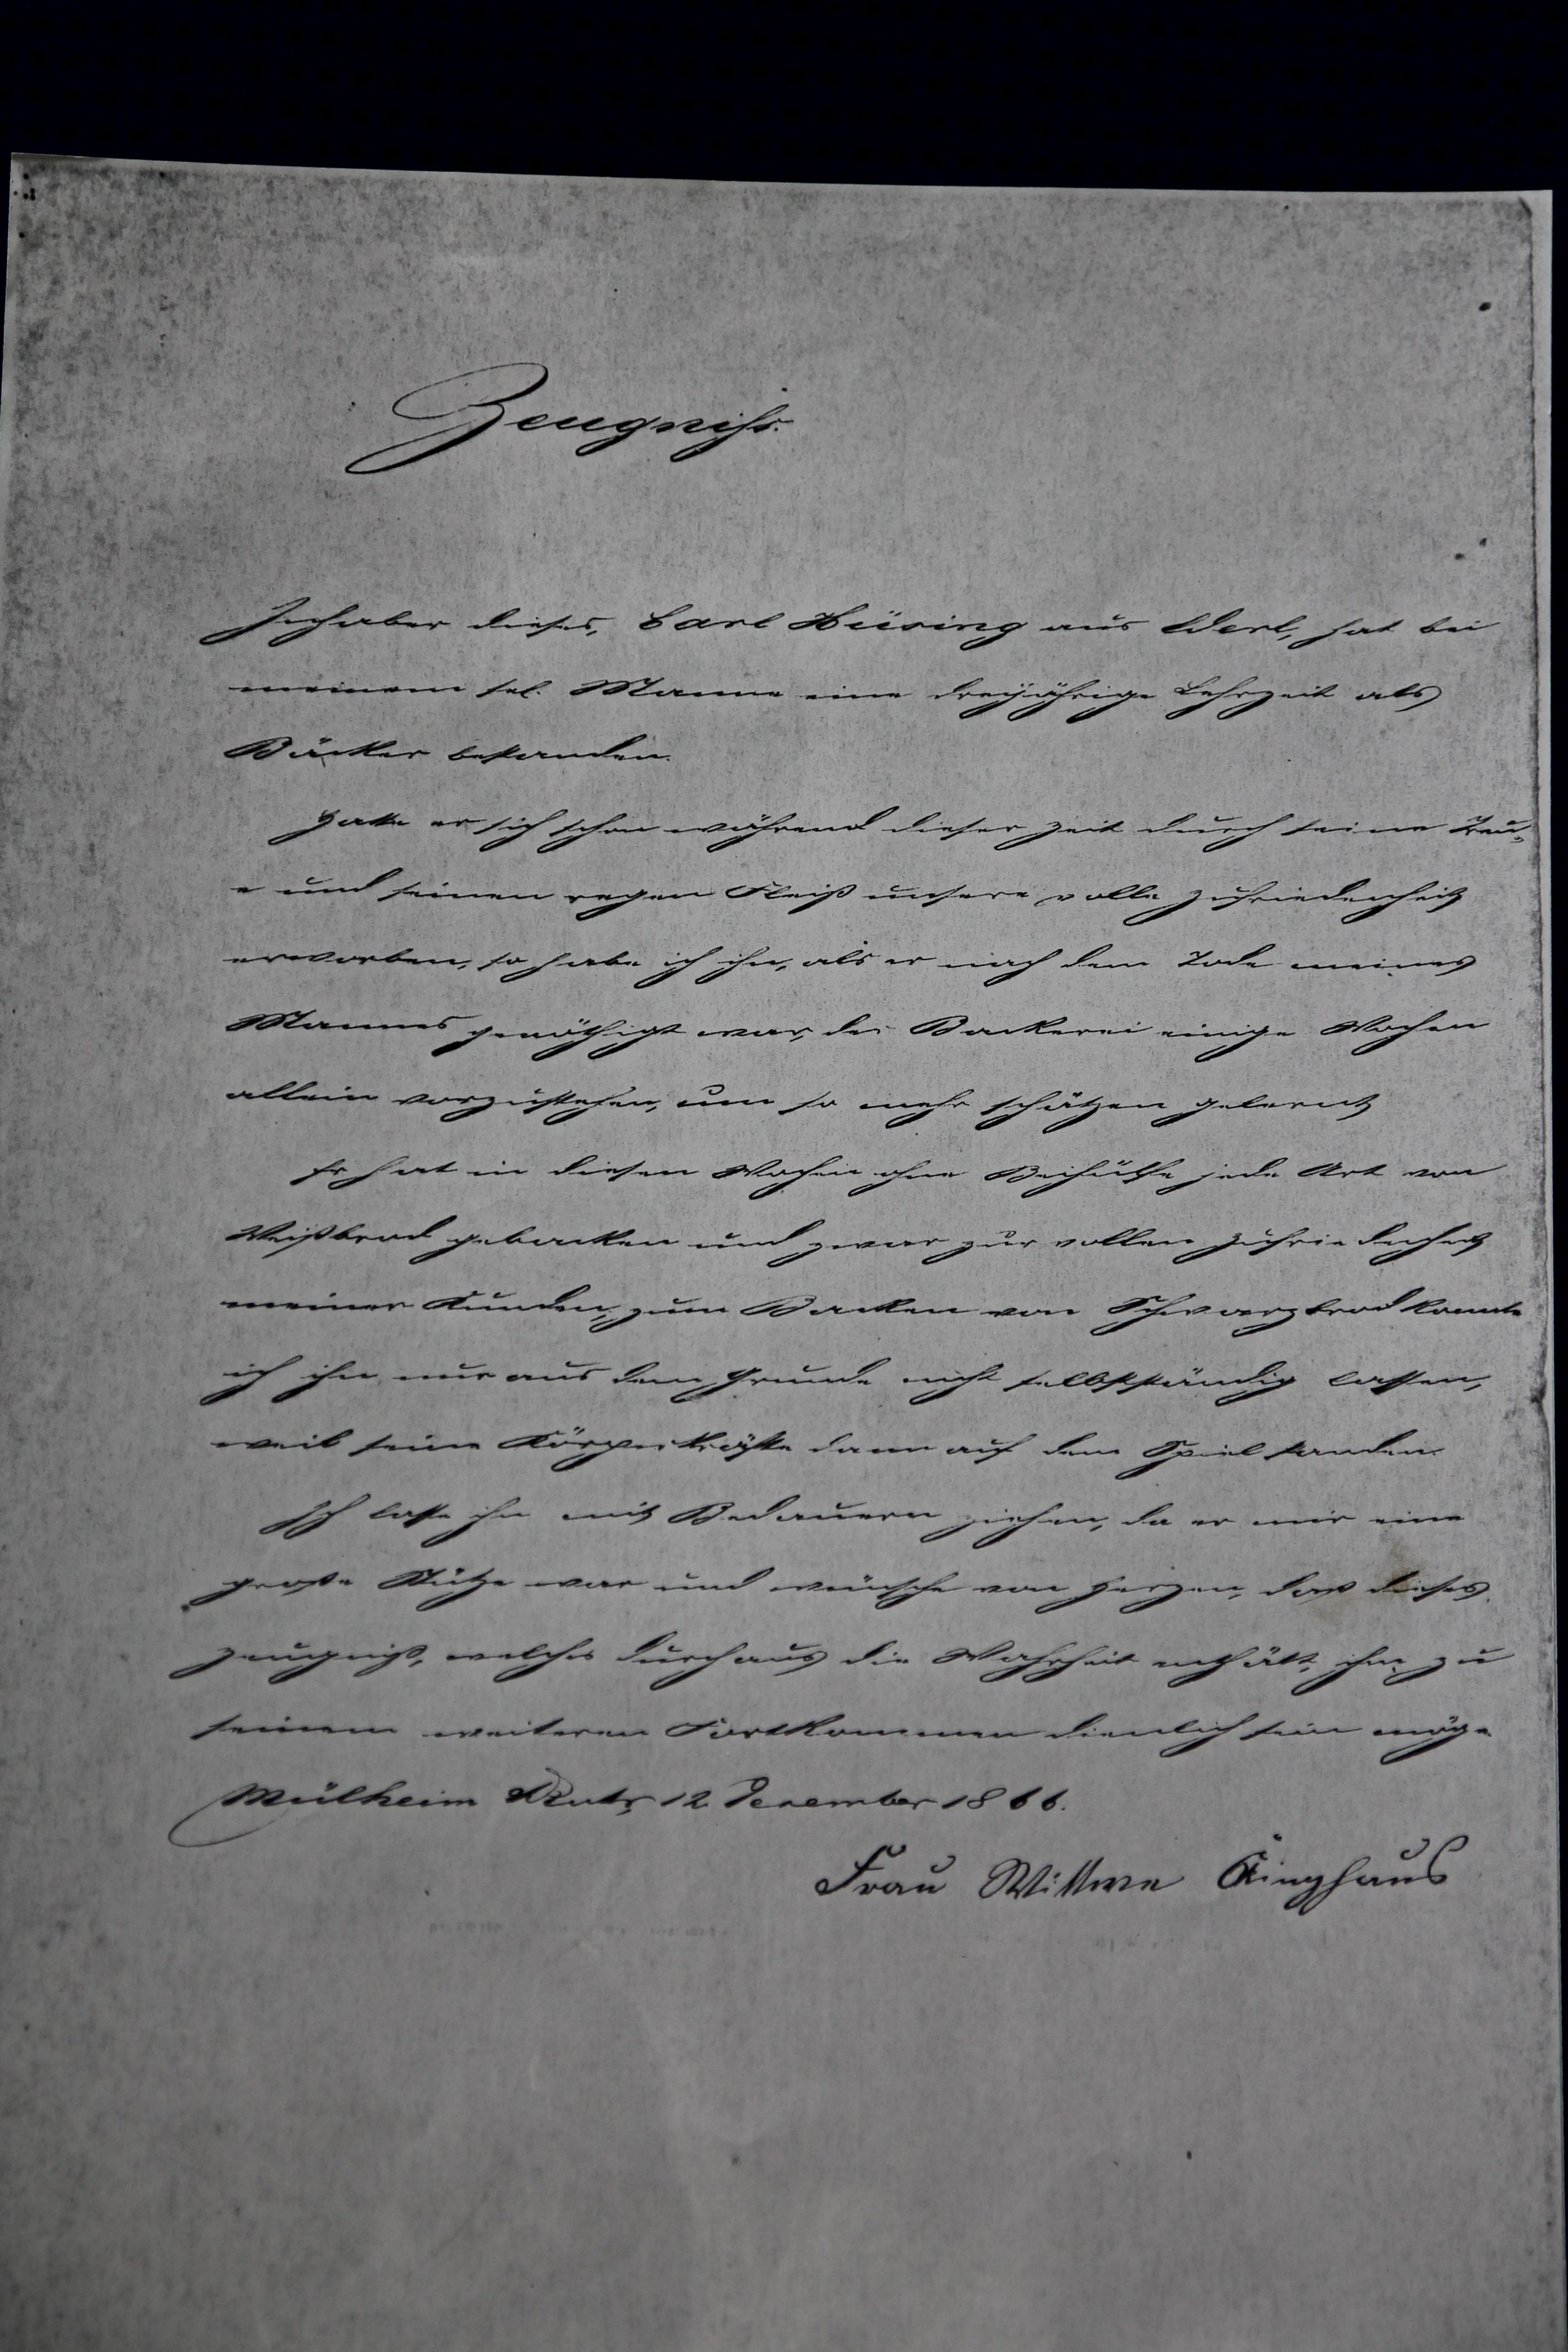 Zeugniss.
Inhaber dieses, Carl Hüsing aus Werl, hat bei
meinem sel. Manne eine dreijährige Lehrzeit als
Bäcker bestanden.
Hatte er sich schon während dieser Zeit durch seine Treu-
e und seinen regen Fleiß unsere volle Zufriedenheit
erworben, so habe ich ihn, als er nach dem Tode meines
Mannes genöthigt war, der Backerei einige Wochen
allein vorzustehen, um so mehr schätzen gelernt
Er hat in diesen Wochen ohne Beihülfe jede Art von
Weißbrod gebacken und zwar zur vollen Zufriedenheit
meiner Kunden, zum Backen von Schwarzbrod konnte
ich ihn nur aus dem Grunde nicht selbstständig lassen,
weil seine Körperkräfte dann auf dem Spiel standen.
Ich lasse ihn mit Bedauern ziehen, da er mir eine
große Stütze war und wünsche von Herzen, daß dieses
Zeugniß, welches durchaus die Wahrheit enthält, ihm zu
seinem weiteren Fortkommen dienlich sein möge
Mülheim Ruhr, 12 Dezember 1866.
Frau Wittwe Kinghaus